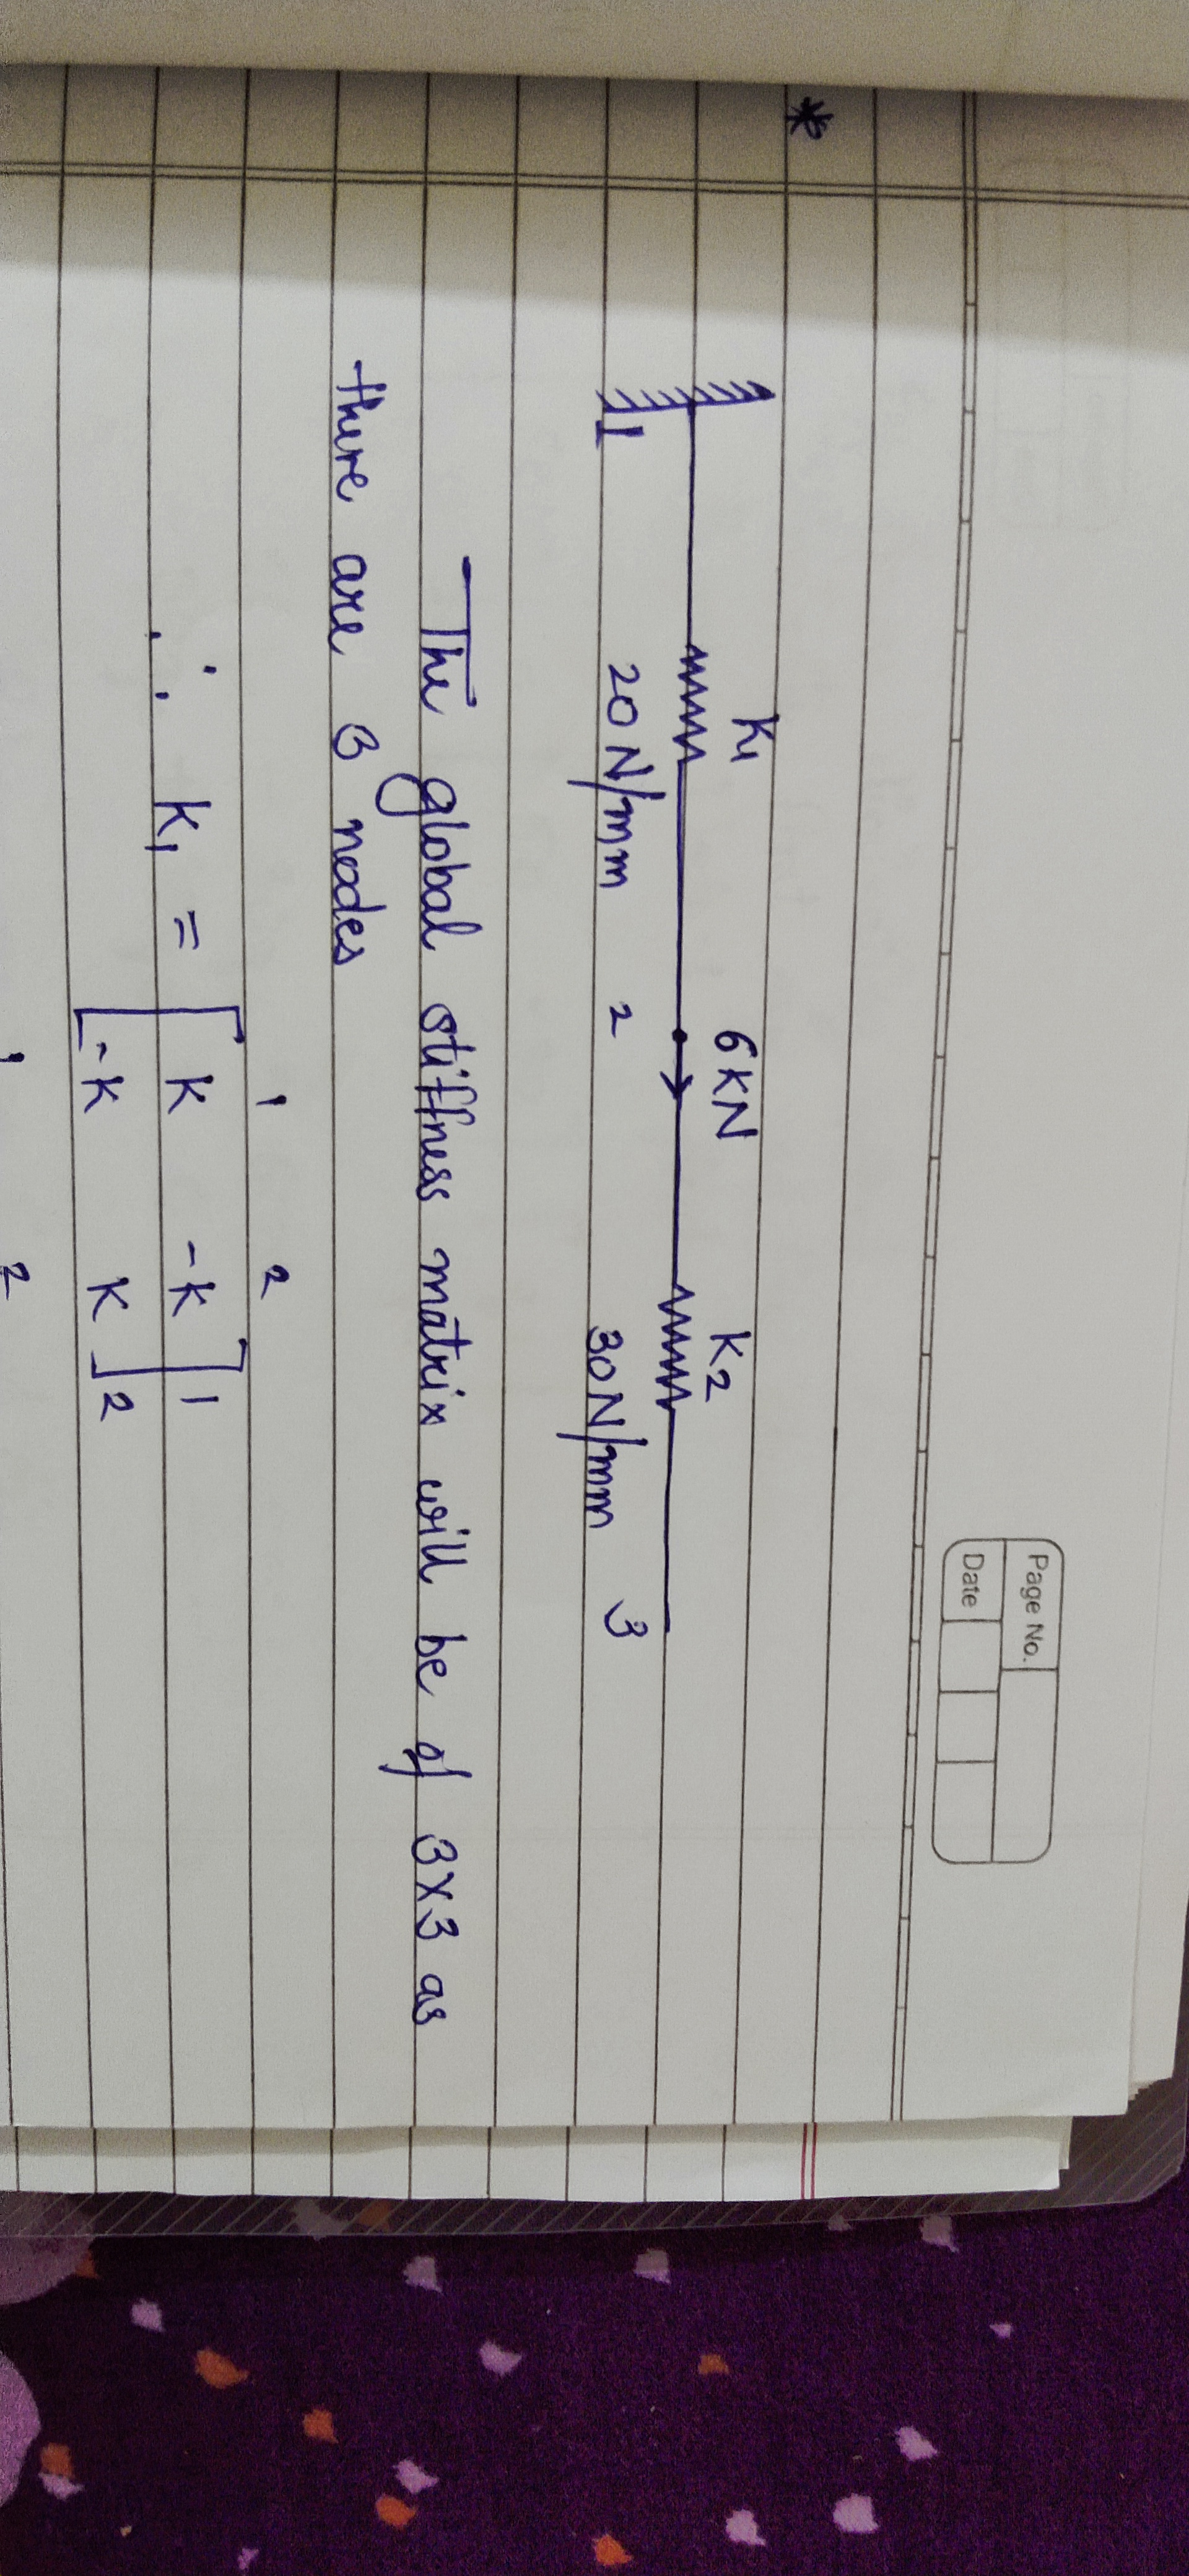 Page No.
Date
*
K1 6 KN K2
1 20 N/mm 2 30 N/mm 3
The global stiffness matrix will be of 3x3 as
there are 3 nodes
1 2
∴ K1 = [ K -K ] 1
[ -K K ] 2
1 2